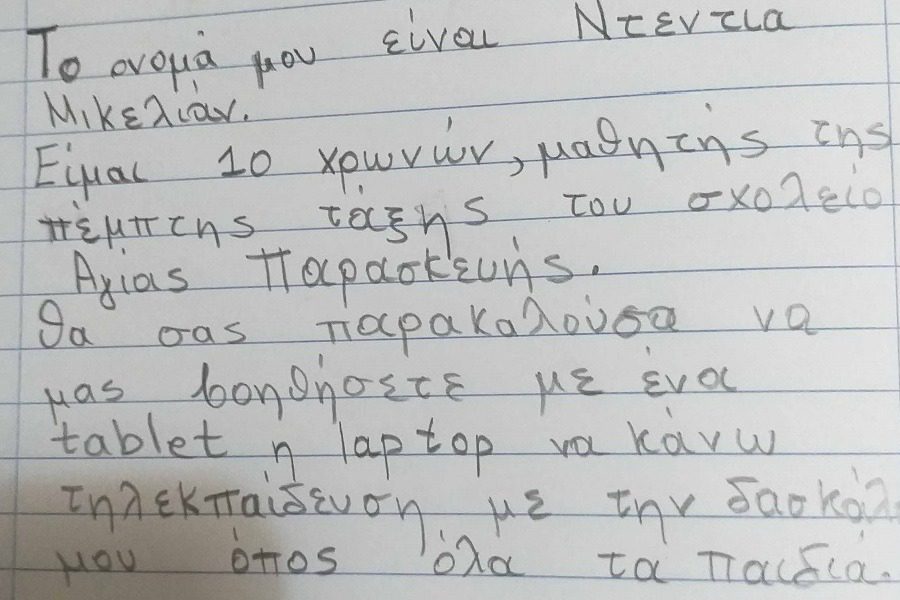 Το ονομά μου είναι Ντεντια
Μικελιάν.
Είμαι 10 χρωνών, μαθητής της
πέμπτης τάξης του σχολείο
Αγίας Παρασκευής.
Θα σας παρακαλούσα να
μας βοηθήσετε με ένα
tablet η laptop να κάνω
τηλεκπαίδευση με την δασκάλ
μου όπος όλα τα παιδιά.